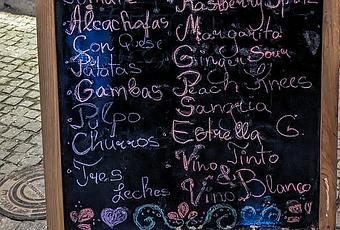 Raspberry Spritz
Alcachafas
Con Qese
Patatas
Gambas
Pulpo
Churros
Tres
Leches
Margarita
Ginger Sour
Peach Knees
Sangria
Estrella G.
Vino Tinto
Vino Blanco